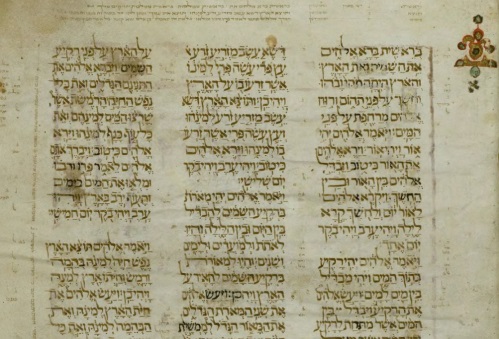 בראשית ברא אלהים
את השמים ואת הארץ
והארץ היתה תהו ובהו
וחשך על פני תהום ורוח
אלהים מרחפת על פני
המים ויאמר אלהים יהי
אור ויהי אור וירא אלהים
את האור כי טוב ויבדל
אלהים בין האור ובין
החשך ויקרא אלהים
לאור יום ולחשך קרא
לילה ויהי ערב ויהי בקר
יום אחד
ויאמר אלהים יהי רקיע
בתוך המים ויהי מבדיל
בין מים למים ויעש אלהים
את הרקיע ויבדל בין
המים אשר מתחת לרקיע
דשא עשב מזריע זרע
עץ פרי עשה פרי למינו
אשר זרעו בו על הארץ
ויהי כן ותוצא הארץ דשא
עשב מזריע זרע למינהו
ועץ עשה פרי אשר זרעו
בו למינהו וירא אלהים
כי טוב ויהי ערב ויהי בקר
יום שלישי
ויאמר אלהים יהי מארת
ברקיע השמים להבדיל
בין היום ובין הלילה והיו
לאתת ולמועדים ולימים
ושנים והיו למאורת
ברקיע השמים להאיר על
הארץ ויהי כן ויעש אלהים
את שני המארת הגדלים
את המאור הגדל לממשלת
על הארץ על פני רקיע
השמים ויברא אלהים את
התנינם הגדלים ואת כל
נפש החיה הרמשת אשר
שרצו המים למינהם ואת
כל עוף כנף למינהו וירא
אלהים כי טוב ויברך אתם
אלהים לאמר פרו ורבו
ומלאו את המים בימים
והעוף ירב בארץ ויהי
ערב ויהי בקר יום חמישי
ויאמר אלהים תוצא הארץ
נפש חיה למינה בהמה
ורמש וחיתו ארץ למינה
ויהי כן ויעש אלהים את
חית הארץ למינה ואת
הבהמה למינה ואת כל